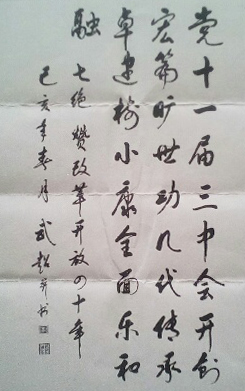 党十一届三中会开创
宏篇旷世功几代传承
卓建树小康全面乐和
融 七绝 赞改革开放四十年
己亥年春月 武超并书